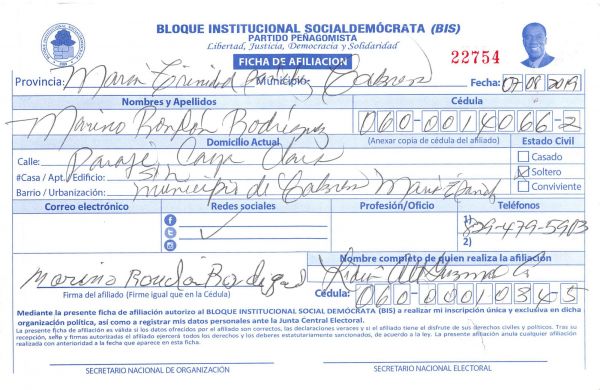 BLOQUE INSTITUCIONAL SOCIALDEMÓCRATA (BIS)
PARTIDO PEÑAGOMISTA
Libertad, Justicia, Democracia y Solidaridad
FICHA DE AFILIACION
22754
Provincia: María Trinidad Municipio: Cabrera Fecha: 07 08 2019
Nombres y Apellidos Cédula
Marino Rondon Rodriguez 060-0014066-2
Domicilio Actual (Anexar copia de cédula del afiliado) Estado Civil
Calle: Paraje Casado
#Casa / Apt./ Edificio: S/N Soltero
Barrio / Urbanización: municipio de Cabrera Conviviente
Correo electrónico Redes sociales Profesión/Oficio Teléfonos
1) 829-479-5903
2)
Nombre completo de quien realiza la afiliación
Marino Rondon
Firma del afiliado (Firme igual que en la Cédula) Cédula: 060-0001034-5
Mediante la presente ficha de afiliación autorizo al BLOQUE INSTITUCIONAL SOCIAL DEMÓCRATA (BIS) a realizar mi inscripción única y exclusiva en dicha
organización política, así como a registrar mis datos personales ante la Junta Central Electoral.
La presente ficha de afiliación es válida si los datos ofrecidos por el afiliado son correctos, las declaraciones veraces y si el afiliado tiene al disfrute de sus derechos civiles y políticos. Tras su
recepción, sellp y firmas autorizadas el afiliado ejercerá todos los derechos y los deberes estatutariamente sancionados, de acuerdo a la ley. La presente afiliación anula cualquier afiliación
realizada con anterioridad a la fecha que aparece en esta ficha.
SECRETARIO NACIONAL DE ORGANIZACIÓN SECRETARIO NACIONAL ELECTORAL